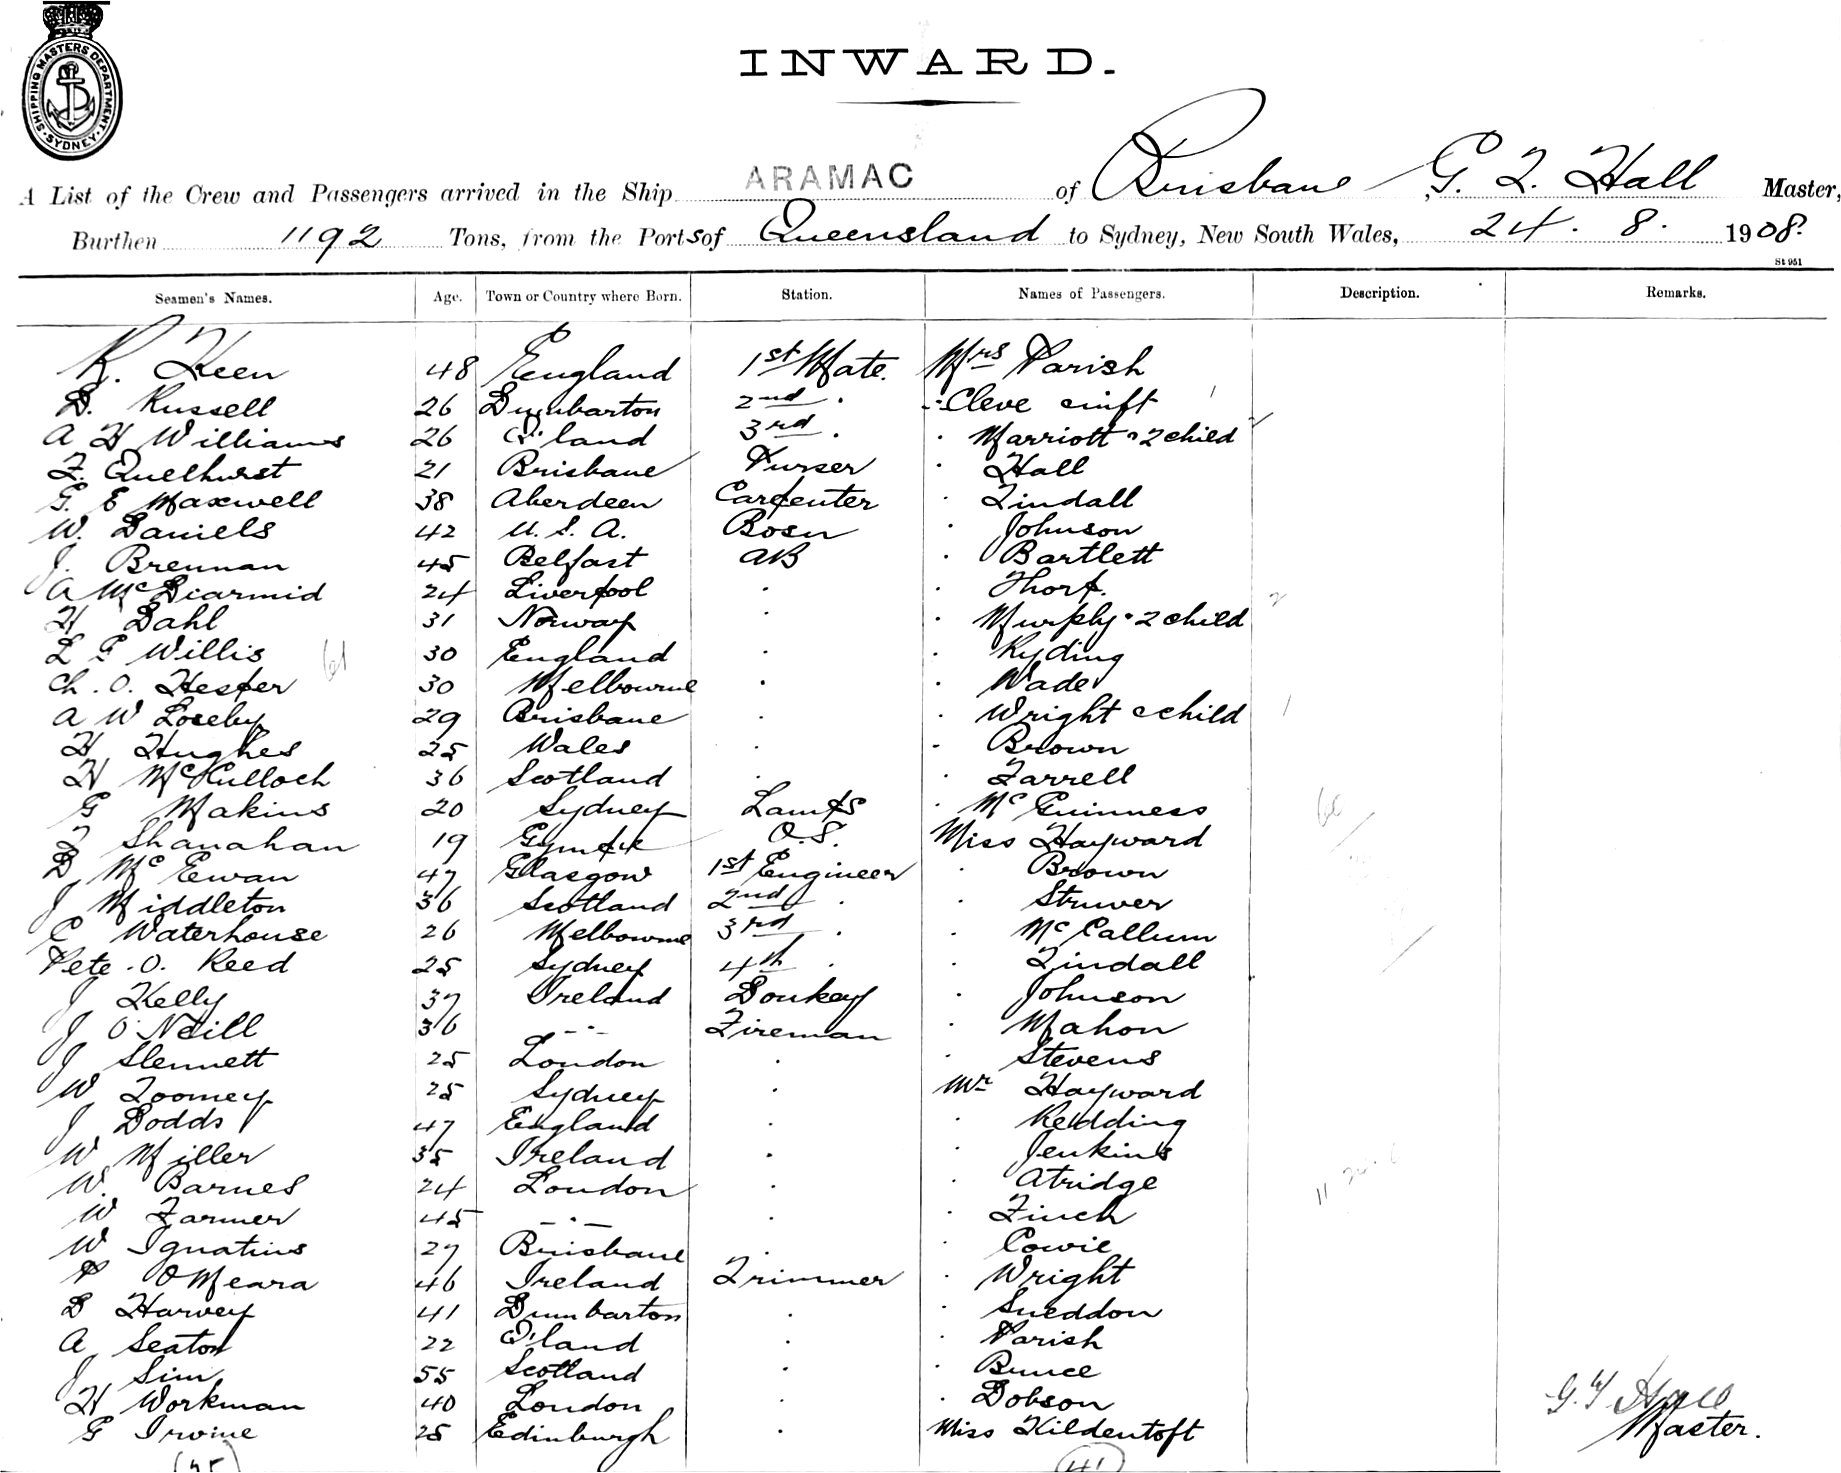 SHIPPING MASTERS DEPARTMENT. SYDNEY.
INWARD.
A List of the Crew and Passengers arrived in the Ship ARAMAC of Brisbane, G. T. Hall Master,
Burthen 1192 Tons, from the Ports of Queensland to Sydney, New South Wales, 24. 8. 1908.
St 951
Seamen's Names. Age. Town or Country where Born. Station. Names of Passengers. Description. Remarks.
R. Keen 48 England 1st Mate. Mrs Parish
D. Russell 26 Dumbarton 2nd . " Cleve
A H Williams 26 Q'land 3rd . . Marriott & 2 child
F. Quelhurst 21 Brisbane Purser . Hall
G. E Maxwell 38 Aberdeen Carpenter . Tindall
W. Daniels 42 U. S. A. Bosn . Johnson
J. Brennan 45 Belfast AB . Bartlett
A McDiarmid 24 Liverpool . . Thorp.
H Dahl 31 Norway . . Murphy & 2 child 2
L G Willis 61 30 England . . Ryding
Ch. O. Hesper 30 Melbourne . . Wade
A W Loseby 29 Brisbane . . Wright & child 1
H Hughes 25 Wales . . Brown
H McCulloch 36 Scotland . . Farrell
G Makins 20 Sydney Lamps . McGuinness
T Shanahan 19 Gympie O.S. Miss Hayward
D McEwan 47 Glasgow 1st Engineer . Brown
J Middleton 36 Scotland 2nd . . Struver
C Waterhouse 26 Melbourne 3rd . . McCallum
Pete. O. Reed 25 Sydney 4th . . Tindall
J Kelly 37 Ireland Donkey . Johnson
J O'Neill 36 -"- Fireman . Mahon
J Slennett 25 London . . Stevens
W Toomey 25 Sydney . Mr Hayward
J Dodds 47 England . . Redding
W Miller 35 Ireland . . Jenkins
W. Barnes 24 London . . Atridge
W Farmer 45 -"- . . Finch
W Ignatius 27 Brisbane . . Cowie
P O'Meara 46 Ireland Trimmer . Wright
D Harvey 41 Dumbarton . . Sneddon
A Seaton 22 Q'land . . Parish
J Sim 55 Scotland . . Bunce
H Workman 40 London . . Dobson
G Irvine 25 Edinburgh . Miss Kildentoft
G. T Hall
Master.
(35) (41)